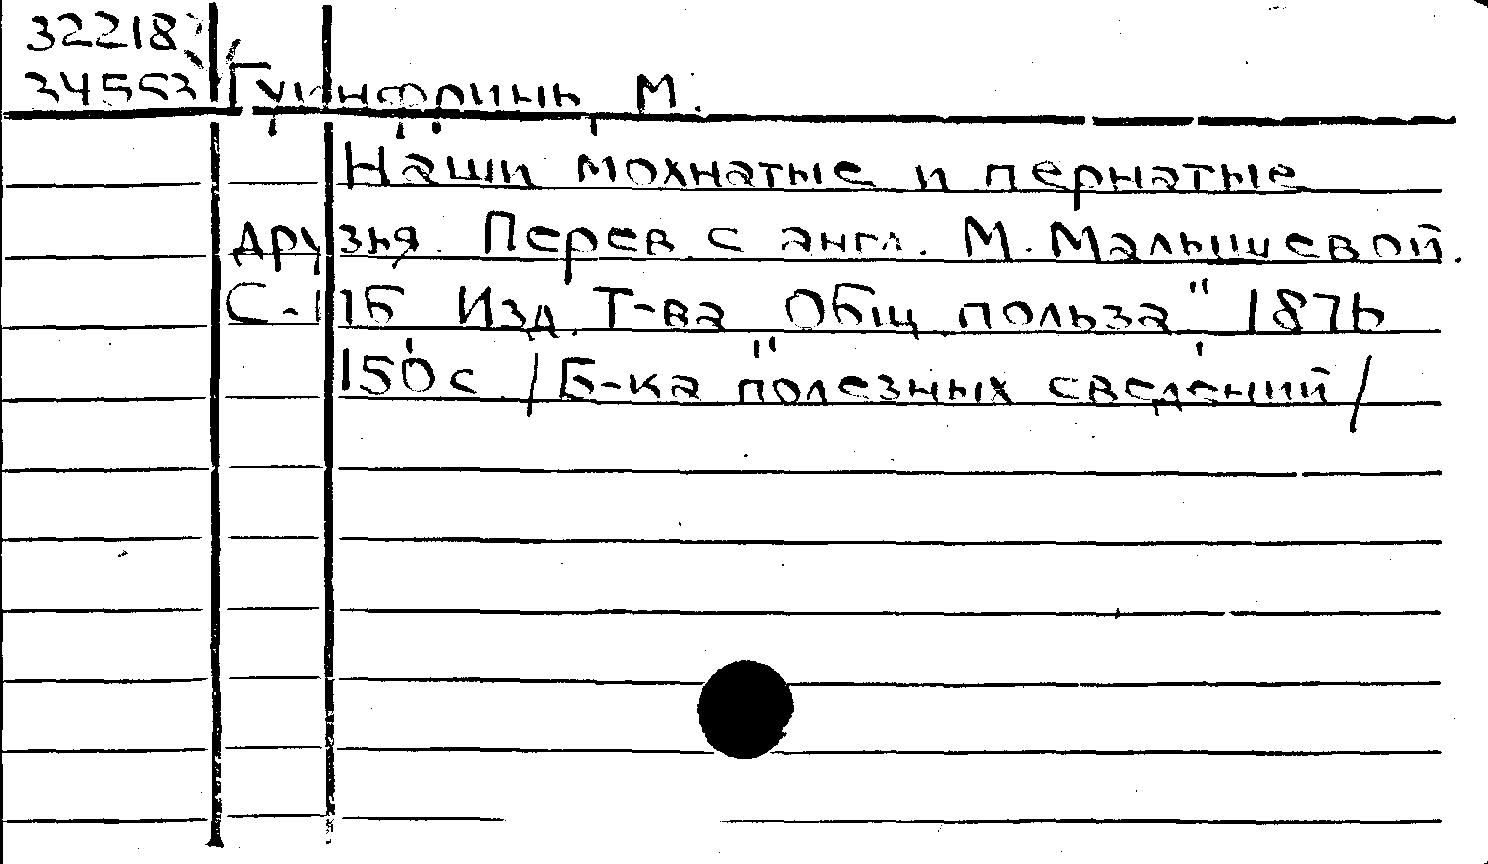 32218
34553 Гуинфринь, М.
Наши мохнатые и пернатые
друзья. Перев. с англ. М. Малышевой.
С-Пб Изд. Т-ва „Общ. польза" 1876,
150 с. /Б-ка полезных сведений/